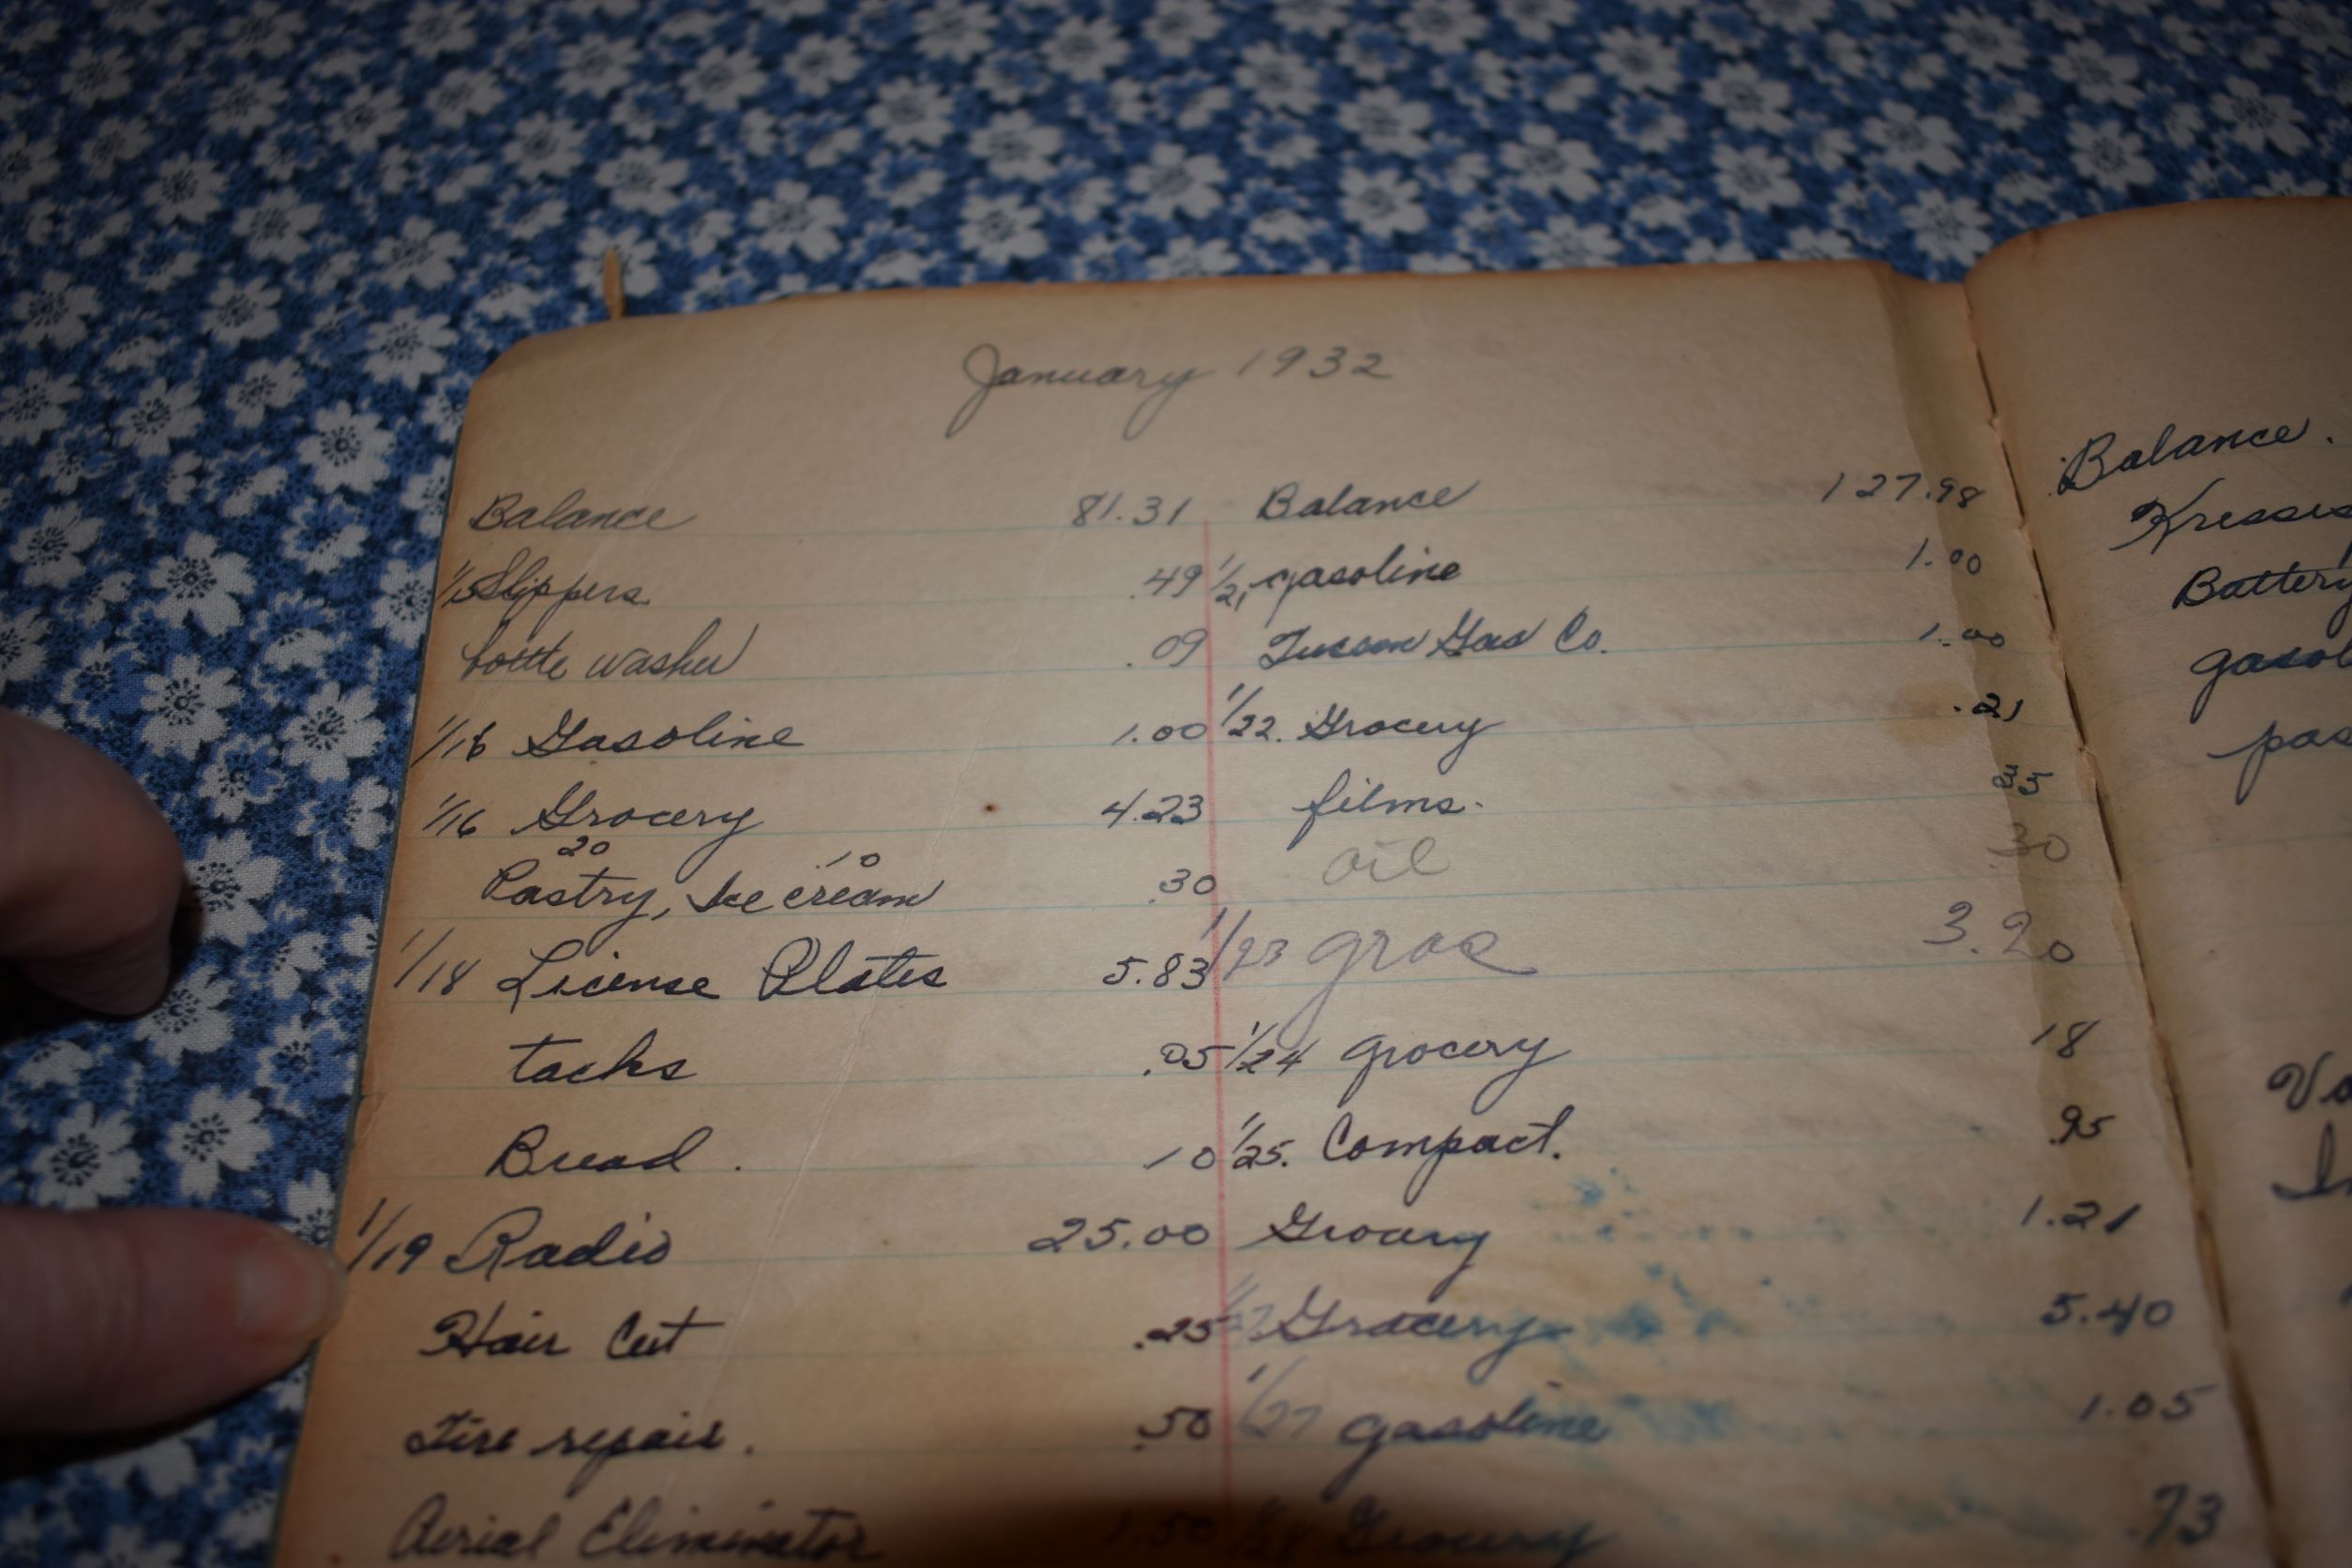 January 1932
Balance 81.31
1/15 Slippers .49
bottle washer .09
1/16 Gasoline 1.00
1/16 Grocery 4.23
20 .10
Pastry, Ice cream .30
1/18 License Plates 5.83
tacks .05
Bread . 10
1/19 Radio 25.00
Hair Cut .25
Tire repair. .50
Aerial Eliminator 1.50
Balance 127.98
1/21 gasoline 1.00
Tucson Gas Co. 1.00
1/22. Grocery .21
films. 35
oil 30
1/23 groc 3.20
1/24 grocery 18
1/25. Compact. .95
Grocery 1.21
1/27 Grocery 5.40
1/27 gasoline 1.05
1/28 Grocery .73
Balance.
Kresses
Battery
gasol
pos
Va
In